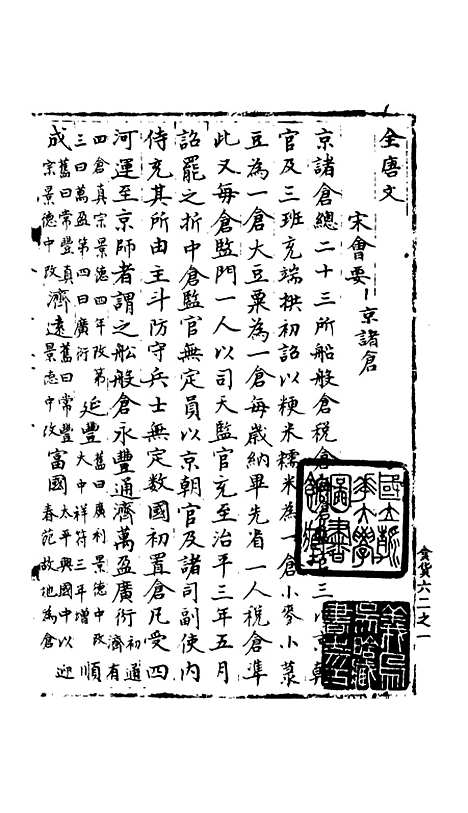 全唐文
宋會要 京諸倉
京諸倉總二十三所船般倉稅倉
官及三班充端拱初詔以粳米糯米為一倉小麥小菉
豆為一倉大豆粟為一倉每歲納畢先省一人稅倉準
此又每倉監門一人以司天監官充至治平三年五月
詔罷之折中倉監官無定員以京朝官及諸司副使內
侍充其所由主斗防守兵士無定數國初置倉凡受四
河運至京師者謂之船般倉永豐通濟萬盈廣衍初通濟有
四倉真宗景德四年改第三曰萬盈第四曰廣衍延豐舊曰廣利景德中改大中祥符三年增順
成舊曰常豐真宗景德中改濟遠舊曰常豐景德中改富國太平興國中以春苑故地為倉迎
食貨六二之一